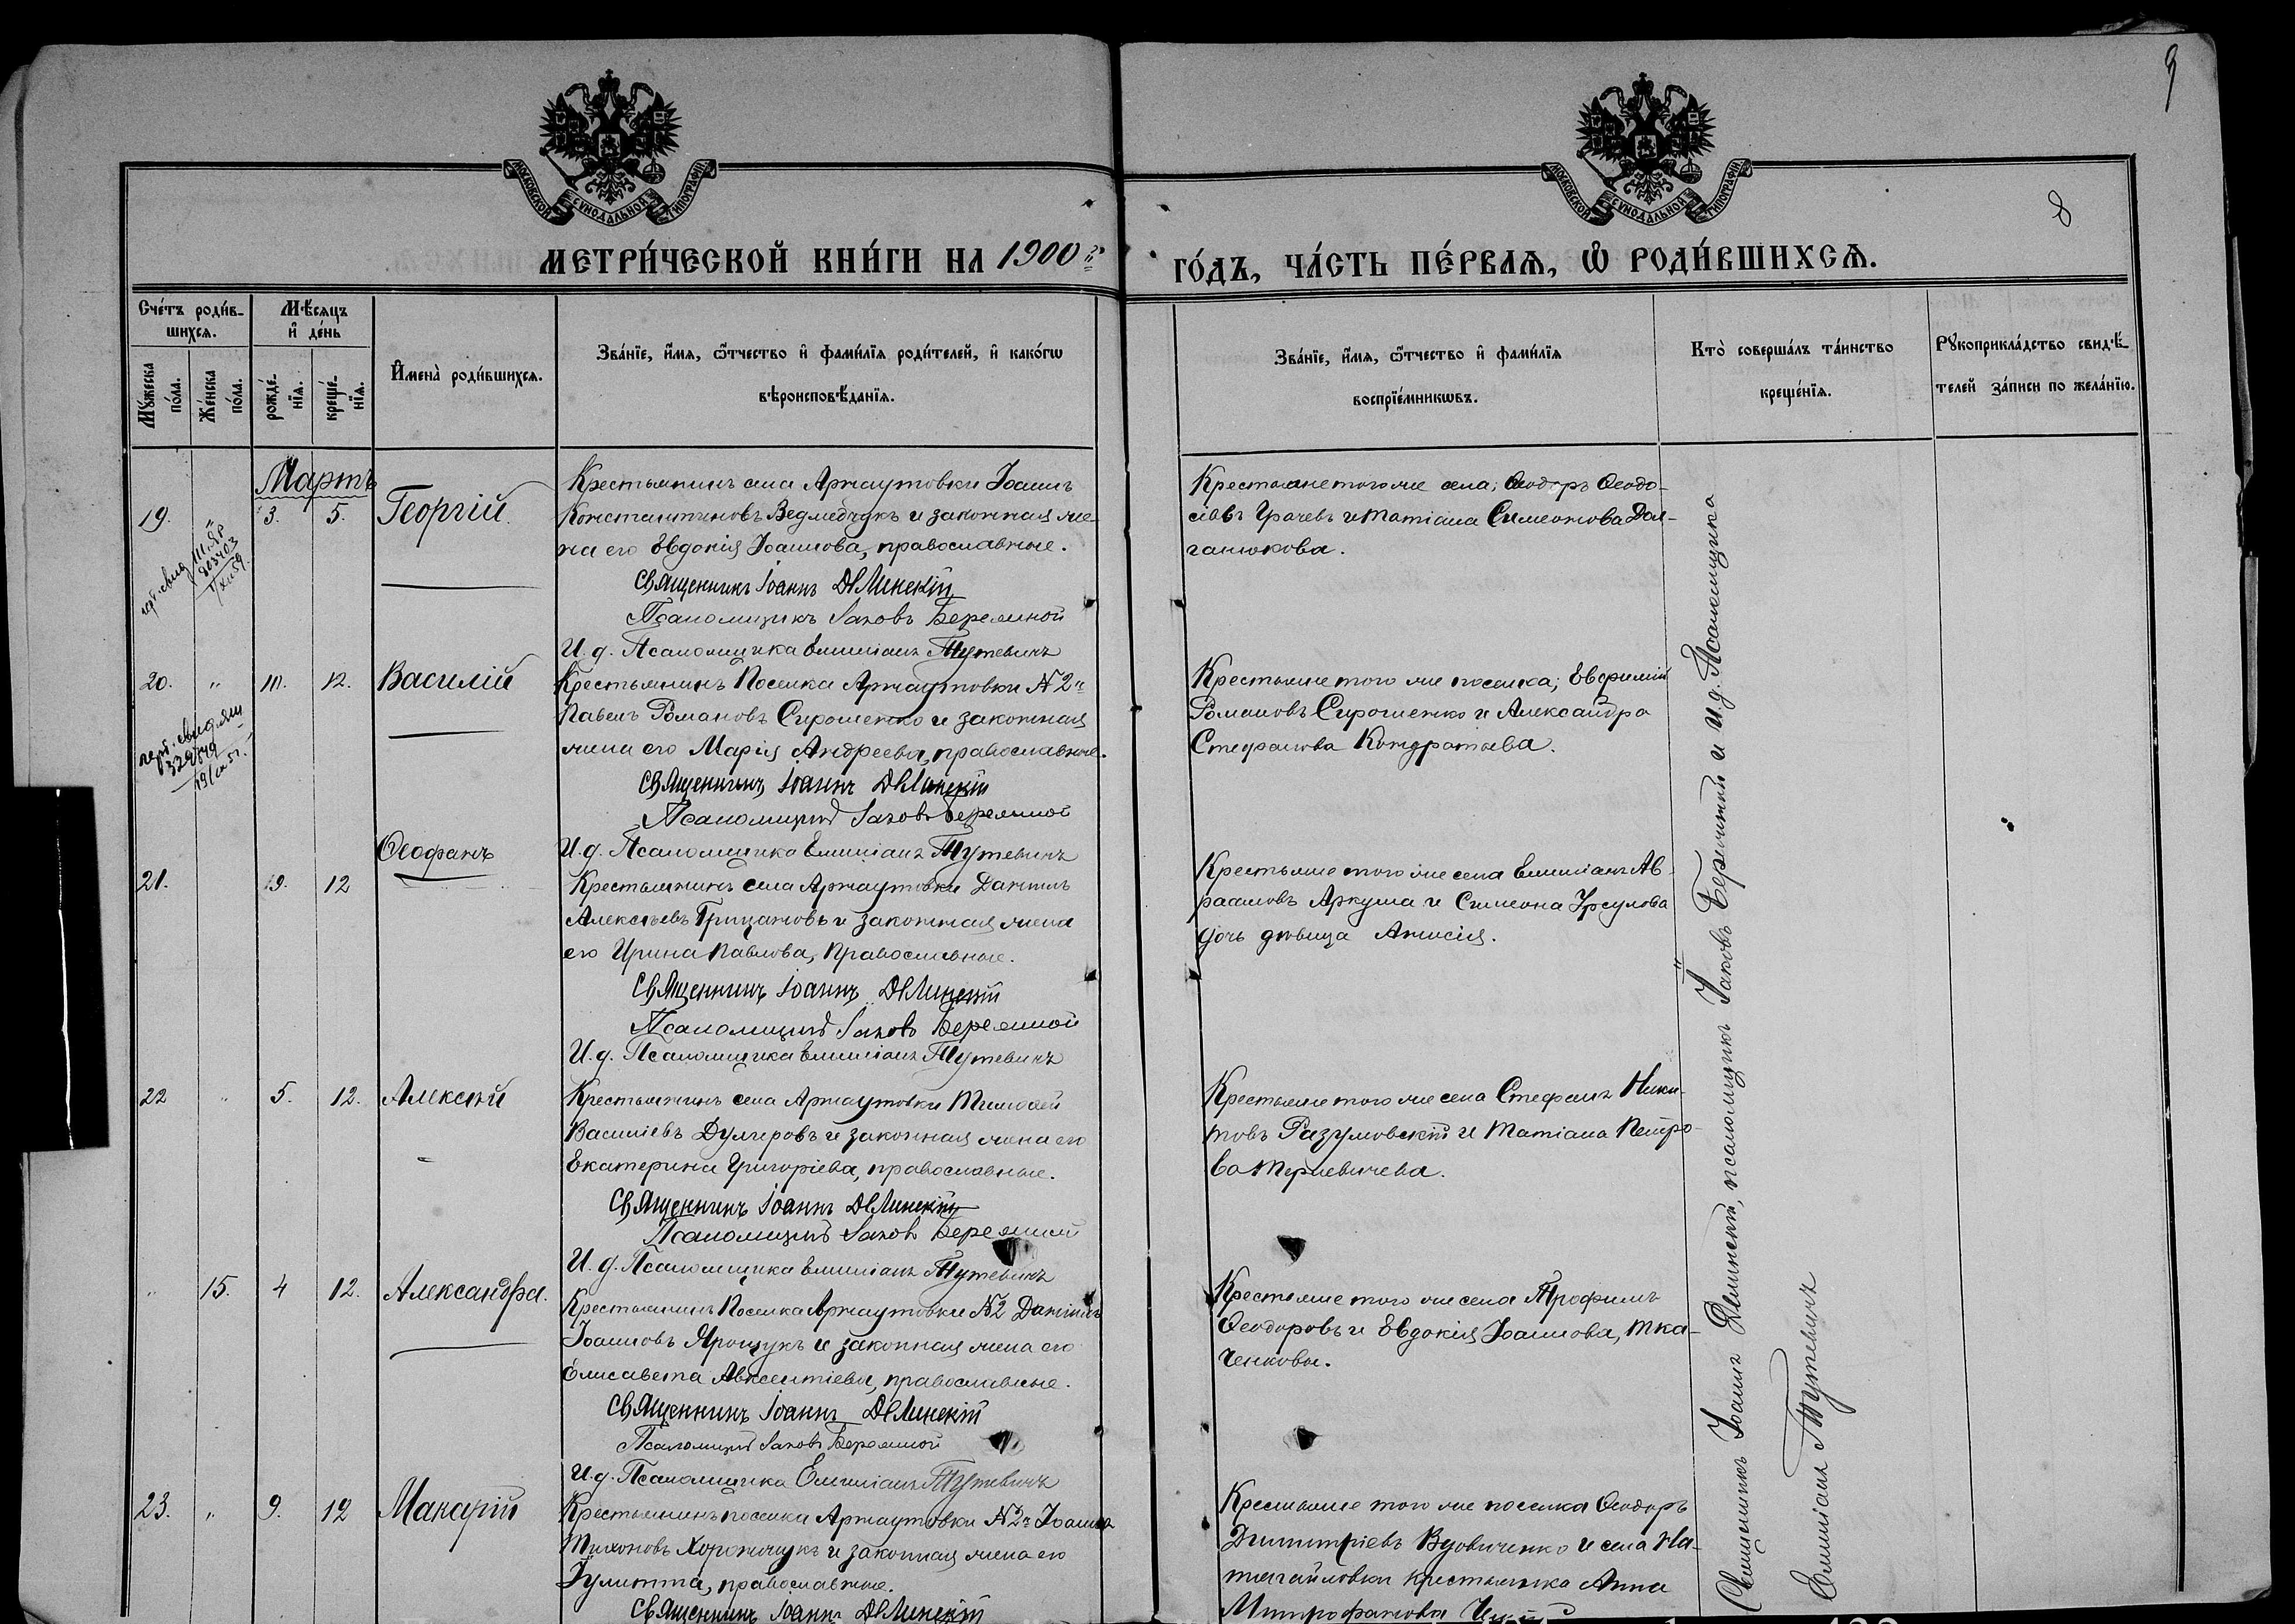 9
8
МОСКОВСКОЙ СѴНОДАЛЬНОЙ ТИПОГРАФІИ
МОСКОВСКОЙ СѴНОДАЛЬНОЙ ТИПОГРАФІИ
МЕТРИ́ЧЕСКОЙ КНИ́ГИ НА 1900й
ГО́ДЪ, ЧА́СТЬ ПЕ́РВАѦ, Ѽ РОДИ́ВШИХСѦ.
Сче́тъ роди́в-
шихсѧ.
Мꙋ́жеска по́ла.
Же́нска по́ла.
Мѣ́сѧцъ
и҆ де́нь
рожде́-
нїѧ.
креще́-
нїѧ.
И҆мена̀ роди́вшихсѧ.
Зва́нїе, и҆́мѧ, ѻ҆́тчество и҆ фами́лїѧ роди́телей, и҆ како́гѡ
вѣроисповѣ́данїѧ.
Зва́нїе, и҆́мѧ, ѻ҆́тчество и҆ фами́лїѧ
воспрїе́мникѡвъ.
Кто̀ соверша́лъ та́инство
креще́нїѧ.
Рꙋкоприкла́дство свидѣ́-
телей за́писи по жела́нїю.
Мартъ
19. 3. 5. Георгій
Крестьянинъ села Арнаутовки Іоаннъ
Константиновъ Ведмедчукъ и законная же-
на его Евдокія Іоаннова, православные.
Священникъ Іоаннъ Двлинскій
Псаломщикъ Іаковъ Бережной
И. д. Псаломщика Емиліанъ Тутевичъ
Крестьяне того же села; Ѳеодоръ Ѳеодо-
сіевъ Грачевъ и Татіана Симеонова Дол-
ганюкова.
20. " 10. 12. Василій
Крестьянинъ Поселка Арнаутовки № 2й
Павелъ Романовъ Сирошенко и законная
жена его Марія Андреева, православные.
Священникъ Іоаннъ Двлинскій
Псаломщикъ Іаковъ Бережной
И. д. Псаломщика Емиліанъ Тутевичъ
Крестьяне того же поселка; Евфимій
Романовъ Сирошенко и Александра
Стефанова Кондратьева.
21. 9. 12 Ѳеофанъ
Крестьянинъ села Арнаутовки Даніилъ
Алексѣевъ Грицановъ и законная жена
его Ирина Павлова, Православные.
Священникъ Іоаннъ Двлинскій
Псаломщикъ Іаковъ Бережной
И. д. Псаломщика Емиліанъ Тутевичъ
Крестьяне того же села Емиліанъ Ав-
раамовъ Аркуша и Симеона Урсулова
дочь дѣвица Анисія.
22 " 5. 12. Алексѣй
Крестьянинъ села Арнаутовки Тимоѳей
Василіевъ Дулгеровъ и законная жена его
Екатерина Григоріева, православные.
Священникъ Іоаннъ Двлинскій
Псаломщикъ Іаковъ Бережной
И. д. Псаломщика Емиліанъ Тутевичъ
Крестьяне того же села Стефанъ Ники-
товъ Разумовскій и Татіана Петро-
ва
" 15. 4 12. Александра.
Крестьянинъ Поселка Арнаутовки № 2 Даніилъ
Іоанновъ Ярощукъ и законная жена его
Елисавета Авксентіева, православные.
Священникъ Іоаннъ Двлинскій
Псаломщикъ Іаковъ Бережной
И. д. Псаломщика Емиліанъ Тутевичъ
Крестьяне того же села Трофимъ
Ѳеодоровъ и Евдокія Іоаннова, Тка-
ченковы.
23. " 9. 12 Макарій
Крестьянинъ поселка Арнаутовки № 2й Іоаннъ
Тихоновъ и законная жена его
Іулитта, православные.
Священникъ Іоаннъ Двлинскій
Крестьяне того же поселка Ѳеодоръ
Димитріевъ Вдовиченко и села На-
тягайловки крестьянка Анна
Митрофанова
Священникъ Іоаннъ Двлинскій, псаломщикъ Іаковъ Бережной и И. д. Псаломщика
Емиліанъ Тутевичъ